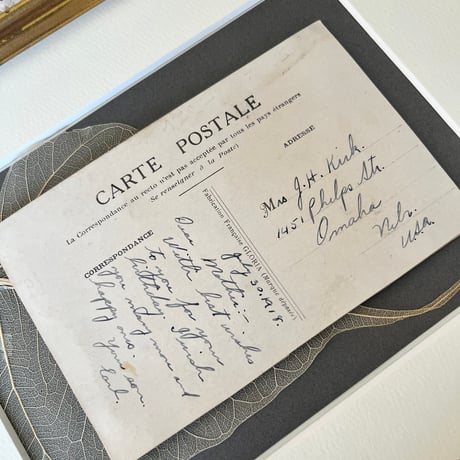 CARTE POSTALE
La Correspondance au recto n'est pas acceptée par tous les pays étrangers
Se renseigner à la Poste)
CORRESPONDANCE
July 30. 1918.
Dear Mother:-
With best wishes
to you for your
birthday. I wish
you many more and
happy ones.
Your son.
Earl.
Fabrication Française GLORIA (Marque déposée)
ADRESSE
Mrs J. H. Kirk.
1451 Phelps Str.
Omaha
Neb.
USA.